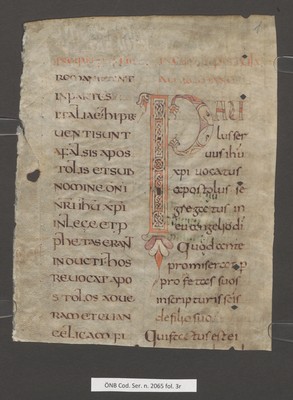 ROMANI SUNT
IN PARTES
ITALIAE hI PRE
UENTI SUNT
A FALSIS APOS
TOLIS ET SUB
NOMINE DNI
NRI IhU XPI
IN LEGE ET P
PHETAS ERAN
INDUCTI hOS
REUOCAT APO
STOLOS AD UE
RAM ET EUAN
GELICAM FI
P
lus ser
uus ihu
xpi uocatus
apostolus se
gregatus in
euangelio di
Quod ante
promiserat p
profetas suos
in scripturis scis
de filio suo
Qui factus est ei
ÖNB Cod. Ser. n. 2065 fol. 3r